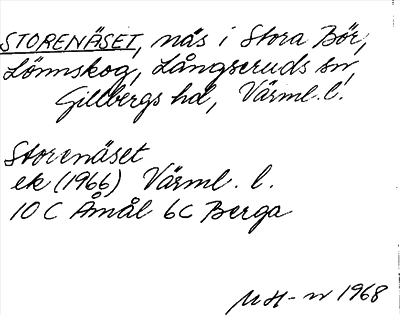 STORENÄSET, näs i Stora Bör,
Lönnskog, Långseruds sn,
Gillbergs hd, Värml. l.
Storenäset
ek (1966) Värml. l.
10 C Åmål 6C Berga
1968